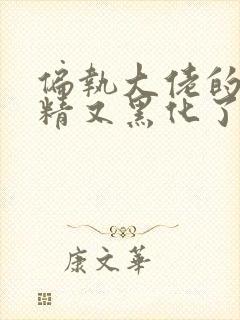 偏执大佬的
精又黑化了
康文华